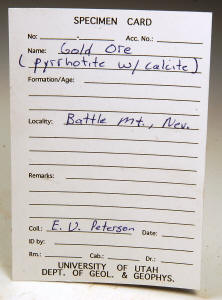 SPECIMEN CARD
No: Acc. No.:
Name: Gold Ore
(pyrrhotite w/ calcite)
Formation/Age:
Locality: Battle Mt., Nev.
Remarks:
Coll.: E. U. Peterson Date:
ID by:
Rm.: Cab.: Dr.:
UNIVERSITY OF UTAH
DEPT. OF GEOL. & GEOPHYS.